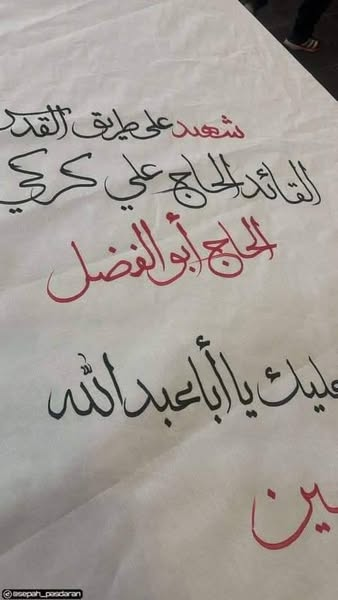 شهيد على طريق القدس
القائد الحاج علي كركي
الحاج أبو الفضل
عليك يا أبا عبد الله
ين
@sepah_pasdaran